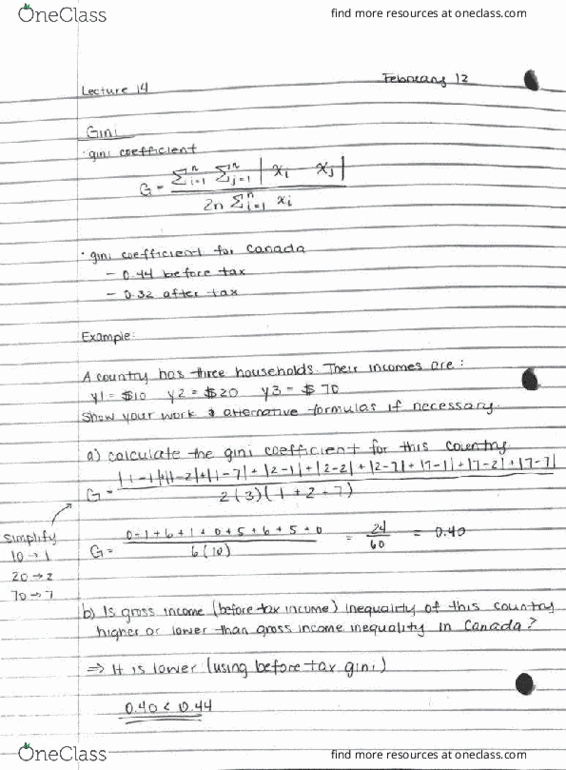 OneClass
find more resources at oneclass.com
Lecture 14
February 12
Gini
· gini coefficient
G = Σⁿᵢ₌₁ Σⁿⱼ₌₁ | xᵢ - xⱼ |
2n Σⁿᵢ₌₁ xᵢ
· gini coefficient for Canada
- 0.44 before tax
- 0.32 after tax
Example:
A country has three households. Their incomes are:
y1 = $10 y2 = $20 y3 = $70
Show your work & alternative formulas if necessary.
a) calculate the gini coefficient for this country
G = |1-1|+|1-2|+|1-7|+|2-1|+|2-2|+|2-7|+|7-1|+|7-2|+|7-7|
2(3)(1+2+7)
simplify
10→1
20→2
70→7
G = 0+1+6+1+0+5+6+5+0 = 24 = 0.40
6(10) 60
b) Is gross income (before tax income) inequality of this country
higher or lower than gross income inequality in Canada?
⇒ It is lower (using before tax gini)
0.40 < 0.44
OneClass
find more resources at oneclass.com